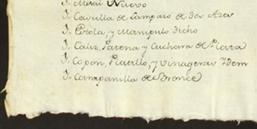 1. Misal Nuevo
1. Casulla de Lampazo de dos Azes
1. Estola, y Manipulo dicho
1. Caliz, Patena y Cuchara de Plata
1. Copon, Platillo, y Vinageras Idem
1. Campanilla de Bronce